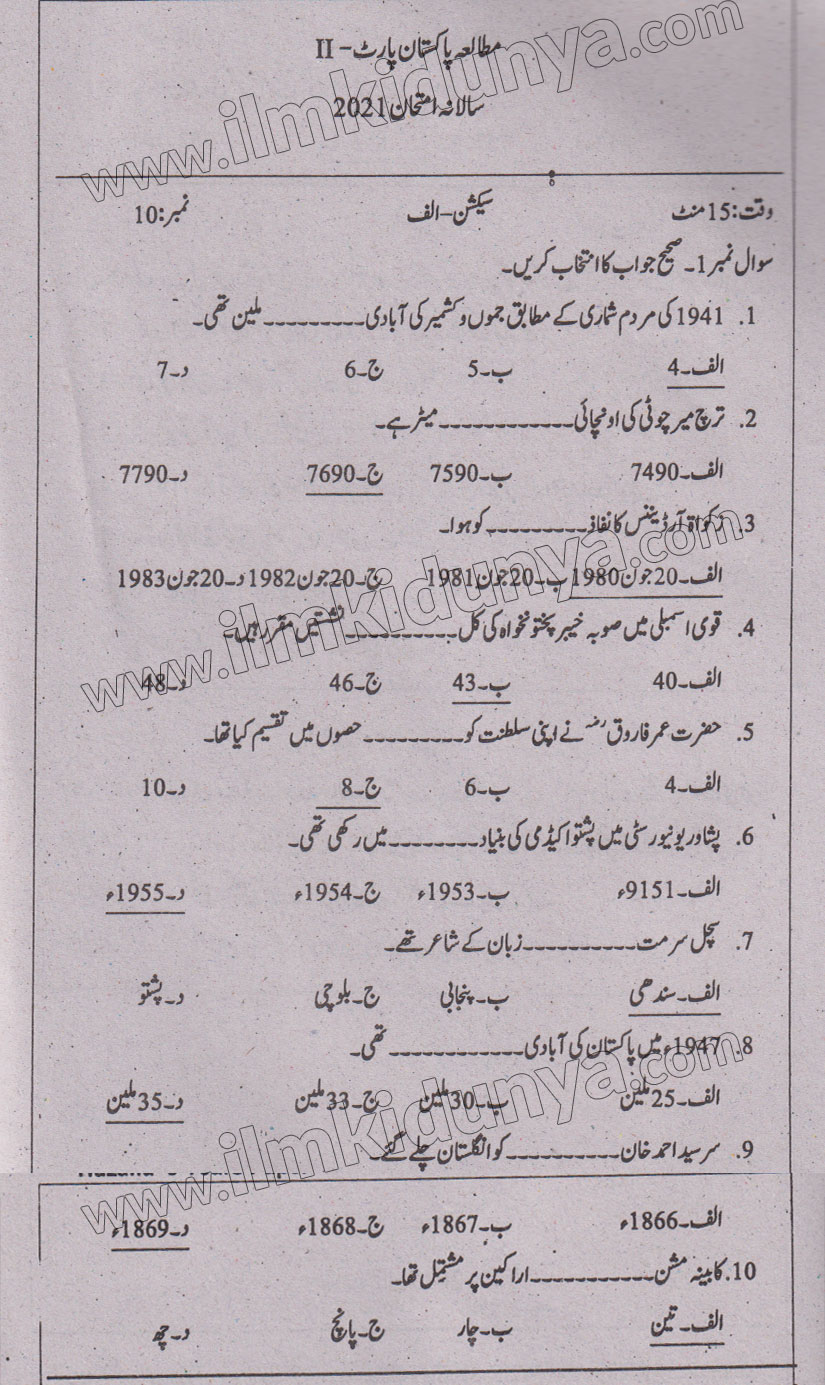 مطالعہ پاکستان پارٹ-II
سالانہ امتحان 2021
www.ilmkidunya.com
وقت:15 منٹ سیکشن-الف نمبر:10
سوال نمبر 1۔ صحیح جواب کا انتخاب کریں۔
1. 1941 کی مردم شماری کے مطابق جموں و کشمیر کی آبادی---------ملین تھی۔
الف۔4 ب۔5 ج۔6 د۔7
2. ترچ میر چوٹی کی اونچائی------------میٹر ہے۔
الف۔7490 ب۔7590 ج۔7690 د۔7790
3. زکواۃ آرڈیننس کا نفاذ---------کو ہوا۔
الف۔20جون1980 ب۔20جون1981 ج۔20جون1982 د۔20جون1983
www.ilmkidunya.com
4. قومی اسمبلی میں صوبہ خیبر پختونخواہ کی کل----------نشستیں مقرر ہیں۔
الف۔40 ب۔43 ج۔46 د۔48
5. حضرت عمر فاروقؓ نے اپنی سلطنت کو---------حصوں میں تقسیم کیا تھا۔
الف۔4 ب۔6 ج۔8 د۔10
6. پشاور یونیورسٹی میں پشتو اکیڈمی کی بنیاد--------میں رکھی تھی۔
الف۔9151ء ب۔1953ء ج۔1954ء د۔1955ء
7. سچل سرمت----------زبان کے شاعر تھے۔
الف۔سندھی ب۔پنجابی ج۔بلوچی د۔پشتو
8. 1947ء میں پاکستان کی آبادی------------تھی۔
الف۔25ملین ب۔30ملین ج۔33ملین د۔35ملین
www.ilmkidunya.com
9. سر سید احمد خان----------کو انگلستان چلے گئے۔
الف۔1866ء ب۔1867ء ج۔1868ء د۔1869ء
10. کابینہ مشن-----------اراکین پر مشتمل تھا۔
الف۔تین ب۔چار ج۔پانچ د۔چھ